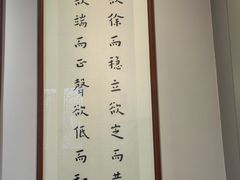 欲徐而稳立欲定而恭
欲端而正聲欲低而和